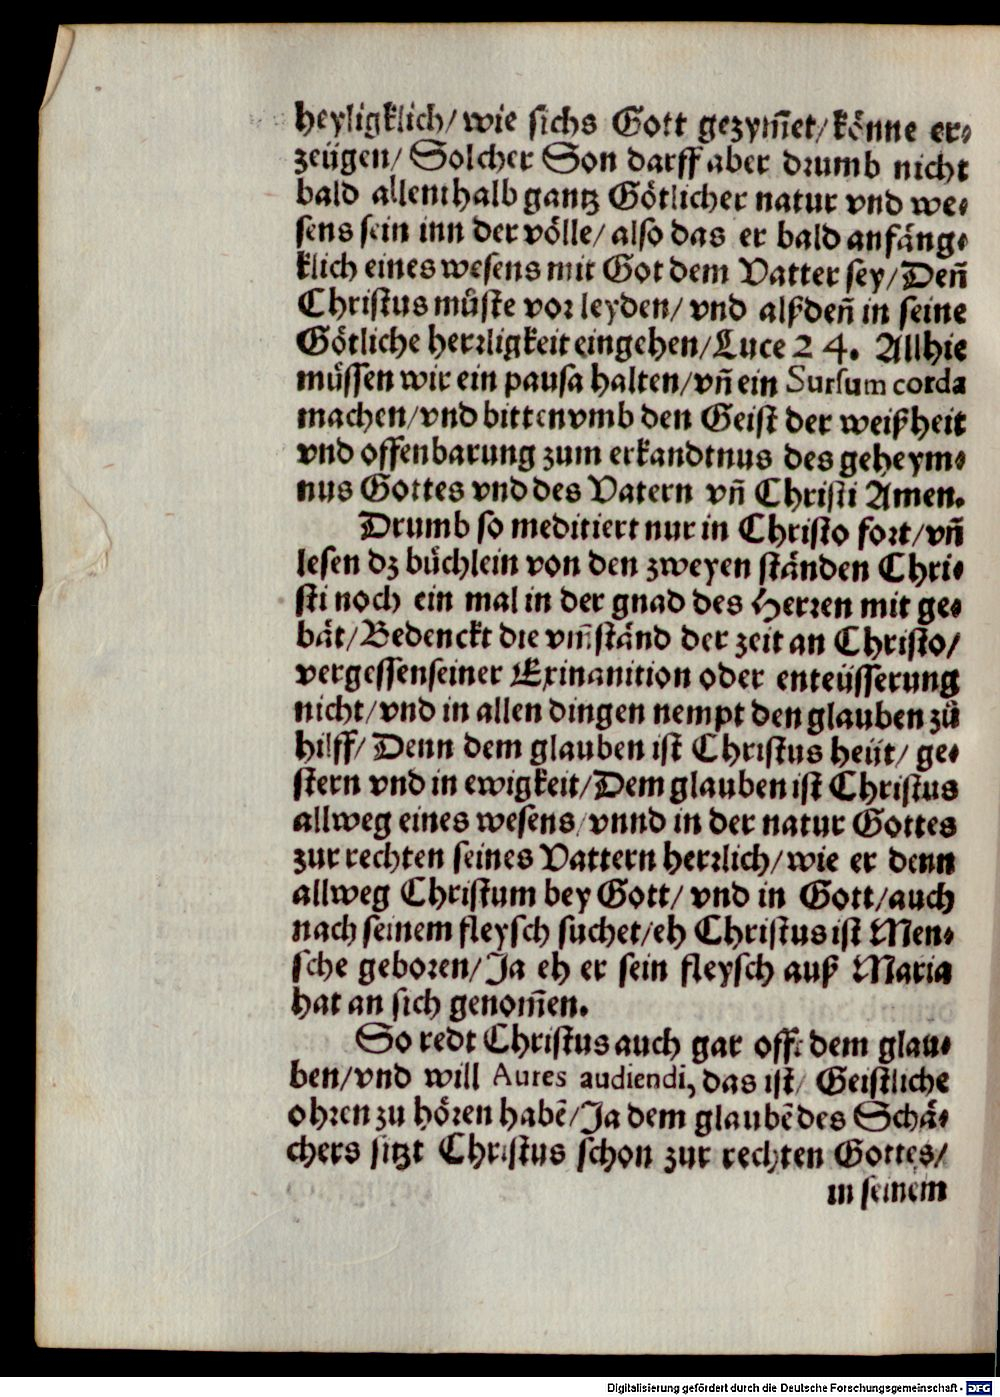 heyligklich/ wie sichs Gott gezym̃et/ könne er⸗
zeügen/ Solcher Son darff aber drumb nicht
bald allenthalb gantz Götlicher natur vnd we⸗
sens sein inn der völle/ also das er bald anfäng⸗
klich eines wesens mit Got dem Vatter sey/ Den̄
Christus můste vor leyden/ vnd alßden̄ in seine
Götliche herrligkeit eingehen/ Luce 24. Allhie
müssen wir ein pausa halten/ vn̄ ein Sursum corda
machen/ vnd bitten vmb den Geist der weißheit
vnd offenbarung zum erkandtnus des geheym⸗
nus Gottes vnd des Vatern vn̄ Christi Amen.
Drumb so meditiert nur in Christo fort/ vn̄
lesen dz büchlein von den zweyen ständen Chri⸗
sti noch ein mal in der gnad des Herren mit ge⸗
bät/ Bedenckt die vm̃ständ der zeit an Christo/
vergessen seiner Exinanition oder enteüsserung
nicht/ vnd in allen dingen nempt den glauben zů
hilff/ Denn dem glauben ist Christus heüt/ ge⸗
stern vnd in ewigkeit/ Dem glauben ist Christus
allweg eines wesens/ vnnd in der natur Gottes
zur rechten seines Vattern herrlich/ wie er denn
allweg Christum bey Gott/ vnd in Gott/ auch
nach seinem fleysch suchet/ eh Christus ist Men⸗
sche geboren/ Ja eh er sein fleysch auß Maria
hat an sich genom̃en.
So redt Christus auch gar offt dem glau⸗
ben/ vnd will Aures audiendi, das ist/ Geistliche
ohren zu hören habē/ Ja dem glaubē des Schä⸗
chers sitzt Christus schon zur rechten Gottes/
in seinem
Digitalisierung gefördert durch die Deutsche Forschungsgemeinschaft - DFG